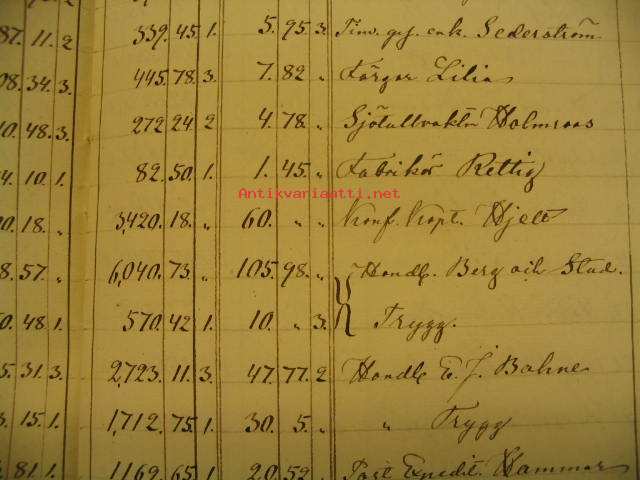 87. 11. 2 339. 45. 1. 5. 95. 3. Timv. gef. enk. Sederström
08. 34. 3. 445. 78. 3. 7. 82 „ Färgar Lilia
10. 48. 3. 272 24. 2 4. 78. „ Sjötullvaktm Holmroos
4. 10. 1. 82. 50. 1. 1. 45. „ Fabrikör Rettig
Antikvariaatti.net
00. 18. „ 3,420. 18. „ 60. „ „ Konf. Kapt. Hjelt
8. 57. „ 6,040. 73. „ 105. 98. „ Handl. Berg och Stud.
60. 48. 1. 570. 42. 1 10. „ 3. Trygg.
5. 31. 3. 2,723. 11. 3. 47. 77. 2 Handl E. J. Bahne
3. 15. 1. 1,712. 75. 1. 30. 5. „ „ Trygg
81. 1. 1169. 65. 1 20. 59. Post Expedit. Hammar